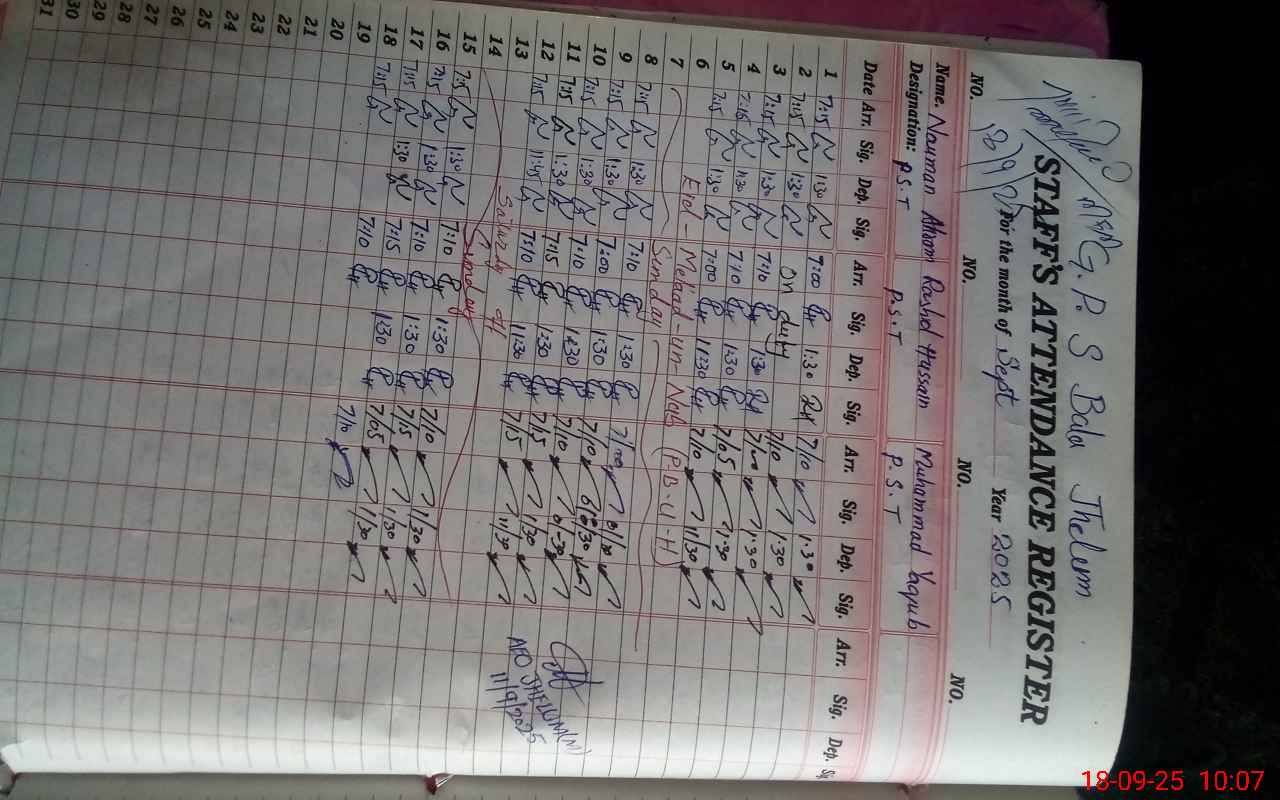 G. P. S Bala Jhelem
STAFF'S ATTENDANCE REGISTER
For the month of Sept Year 2025
NO. NO. NO. NO.
Name. Nauman Rashed Hussain Muhammad Yaqub
Designation: P.S.T P.S.T P.S.T
Date Arr. Sig. Dep. Sig. Arr. Sig. Dep. Sig. Arr. Sig. Dep. Sig. Arr. Sig. Dep.
1 7:15 1:30 7:00 1:30 7/10 1:30
2 7:15 1:30 On duty 7/10 1:30
3 7:15 1:30 7:10 1:30 7/00 1:30
4 7:15 1:30 7:10 1:30 7/05 1:30
5 7:15 1:30 7:00 11:30 7/10 11/30
6 Eid-Melaad-un-Nabi (P.B.U.H)
7 Sunday
8 7:15 1:30 7:10 1:30 7/00
9 7:15 1:30 7:00 1:30 7/10
10 7:15 1:30 7:10 1:30 7/10
11 7:15 1:30 7:15 1:30 7/15 1:30
12 7:15 11:45 7:10 11:30 7/15 11/30
13 Saturday off
14 Sunday
15 7:15 1:30 7:10 1:30 7/10 1/30
16 7:15 1:30 7:10 1:30 7/15 1:30
17 7:15 1:30 7:15 1:30 7/05 1/30
18 7:10 7/10
19
20
21
22
23
24
25
26
27
28
29
30
31
AEO JHELUM(M)
11/9/2025
18-09-25 10:07